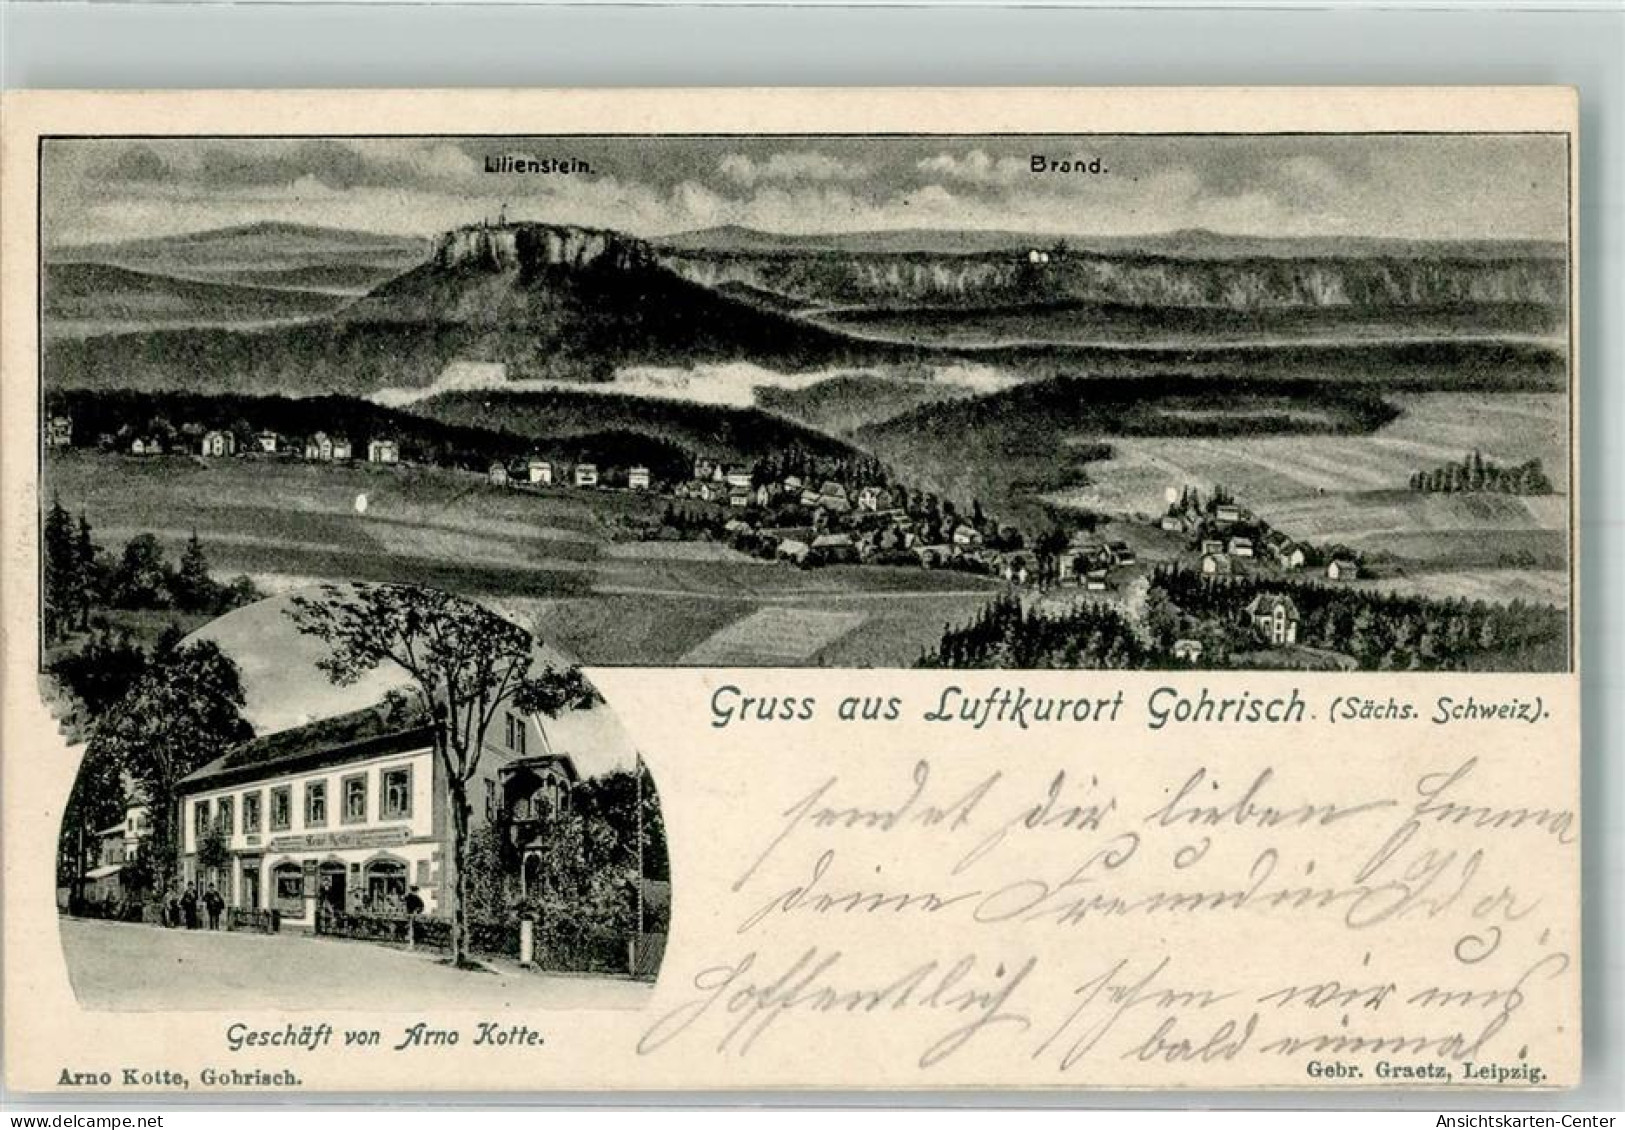 Lilienstein.
Brand.
Gruss aus Luftkurort Gohrisch. (Sächs. Schweiz).
sendet dir lieben Emma
deine Freundin Ida
Hoffentlich sehen wir uns
bald einmal.
Geschäft von Arno Kotte.
Arno Kotte, Gohrisch.
Gebr. Graetz, Leipzig.
oldthing.de
Ansichtskarten-Center